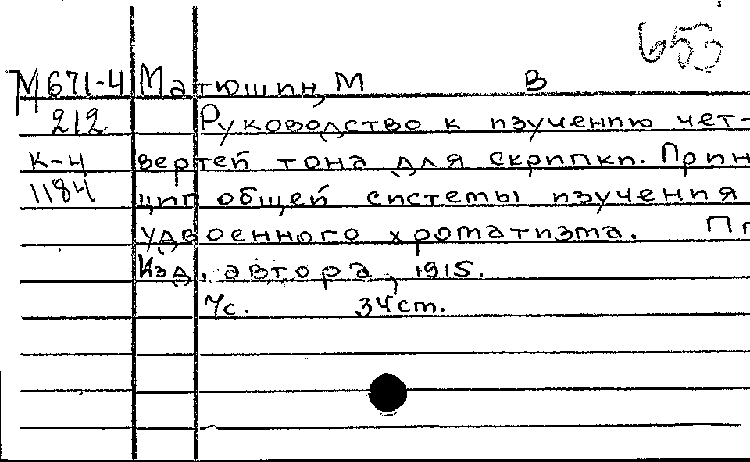 653
М671-4 Матюшин, М В
212 Руководство к изучению чет-
К-н вертей тона для скрипки. Прин
1184 цип общей системы изучения
удвоенного хроматизма. Пг
Изд. автора, 1915.
7с. 34 cm.